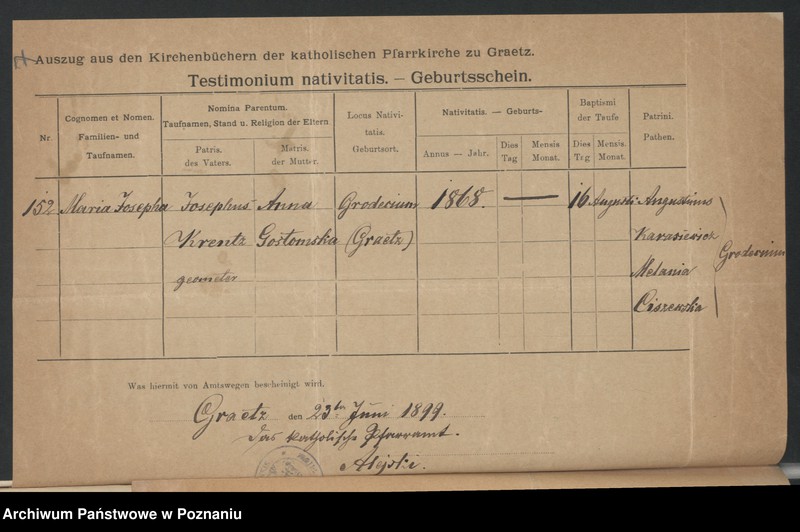 Auszug aus den Kirchenbüchern der katholischen Pfarrkirche zu Graetz.
Testimonium nativitatis. — Geburtsschein.
Nr.
Cognomen et Nomen.
Familien- und
Taufnamen.
Nomina Parentum.
Taufnamen, Stand u. Religion der Eltern
Patris.
des Vaters.
Matris.
der Mutter.
Locus Nativi-
tatis.
Geburtsort.
Nativitatis. — Geburts-
Annus — Jahr.
Dies
Tag
Mensis
Monat.
Baptismi
der Taufe
Dies
Tag
Mensis.
Monat.
Patrini.
Pathen.
152 Maria Josepha Josephus Anna Grodecium 1868. — 16 Augusti Augustinus
Krentz Gostomska (Graetz) Karasiewicz
Grodecium
geometer Melania
Ciszewska
Was hiermit von Amtswegen bescheinigt wird.
Graetz den 23ten Juni 1899.
Das katholische Pfarramt.
Alejski.
Archiwum Państwowe w Poznaniu